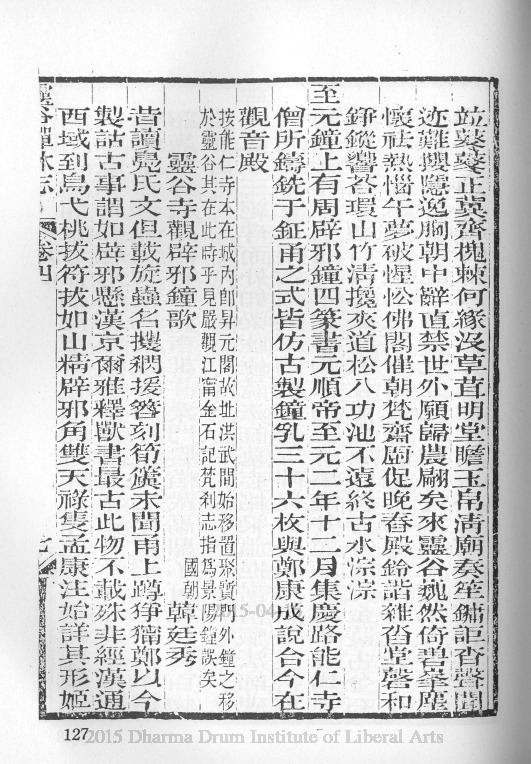 竝葵葵正冀齊槐棘何緣沒草茸明堂贍玉帛清廟奏笙鏞詎沓聲聞
迩難攖隱逸胸朝中辭直禁世外願歸農翩矣來靈谷巍然倚碧峯塵
懷祛熱惱午夢破惺忪佛閣催朝梵齋廚促晩舂殿鈴諧雜沓堂磬和
錚鏦響荅環山竹淸攙夾道松八功池不遠終古水淙淙
至元鐘上有周辟邪鐘四篆書元順帝至元二年十二月集慶路能仁寺
僧所鑄銑于鉦甬之式皆仿古製鐘乳三十六枚與鄭康成說合今在
觀音殿
按能仁寺本在城內卽昇元閣故址洪武間始移置聚寶門外鐘之移
於靈谷其在此時乎見嚴觀江甯金石記梵刹志指爲景陽鐘誤矣
靈谷寺觀辟邪鐘歌
國朝 韓廷秀
昔讀鳧氏文但載旋蟲名搜網援簪刻筍簴未聞甬上蹲猙獰鄭以今
製詁古事謂如辟邪懸漢京爾雅釋獸書最古此物不載殊非經漢通
西域到烏弋桃拔符拔如山精辟邪角雙天祿隻孟康注始詳其形姬
靈谷禪林志
卷四
七
127
2015 Dharma Drum Institute of Liberal Arts